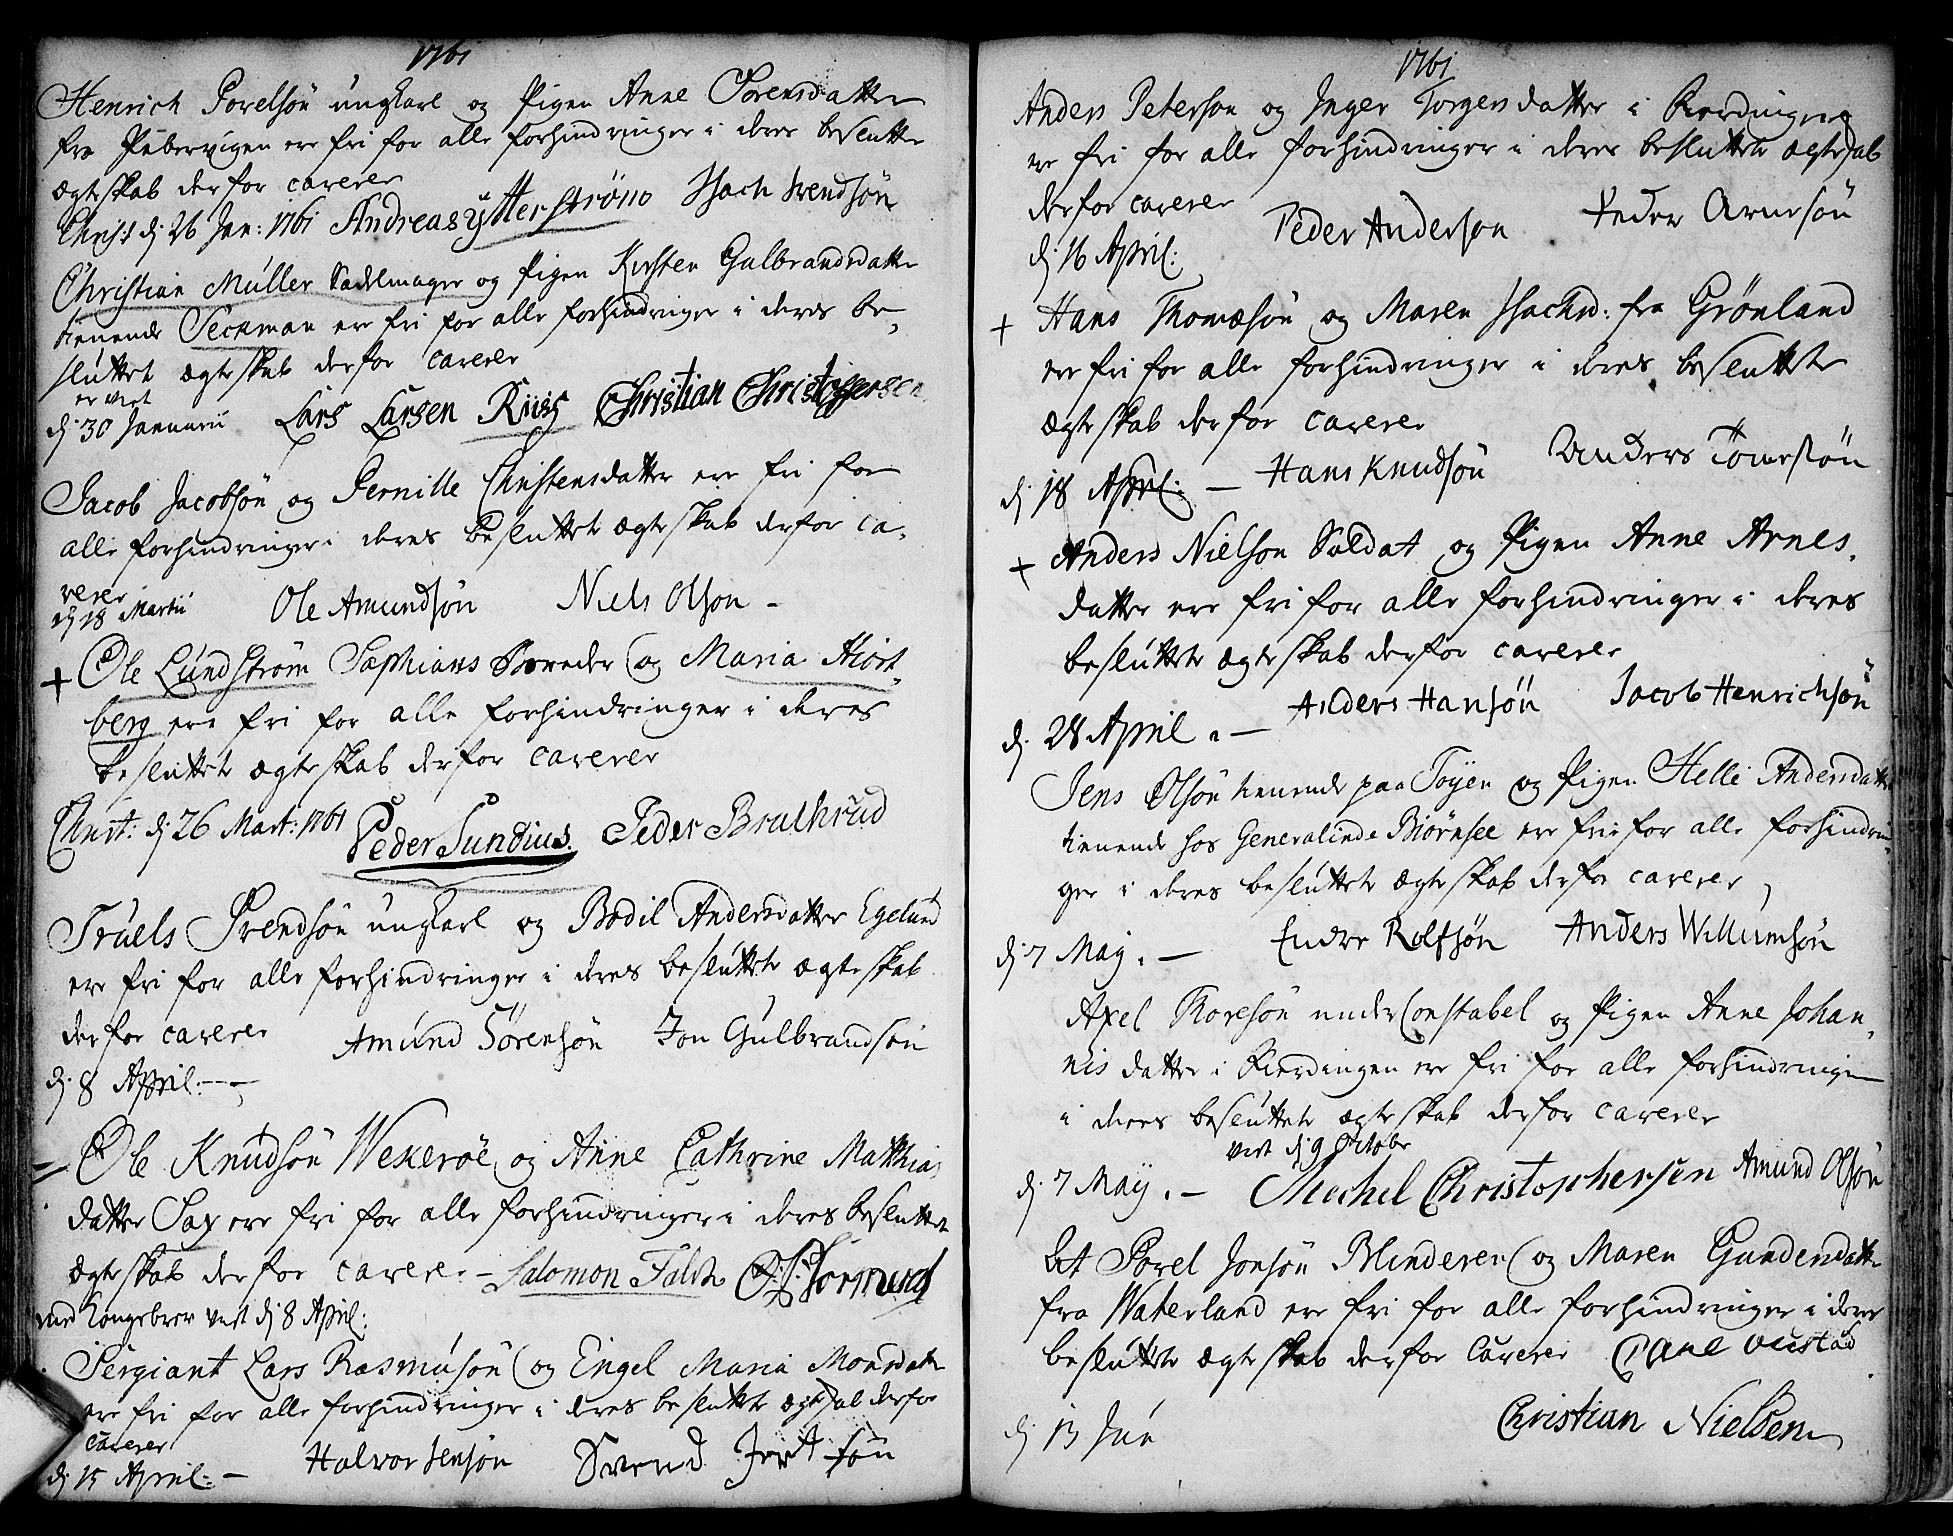 1761
Henrich Povelsøn ungkarl og Pigen Anne Sørensdatter
fra Pibervigen ere fri for alle forhindringer i deres besluttede
ægteskab derfor caverer
Christ d. 26 Jan: 1761 Andreas Ytterstrøm Isach Svendsøn
Christian Müller Sadelmager og Pigen Kirsten Gulbrandsdatter
tienende Seckman ere fri for alle forhindringer i deres be-
sluttet ægteskab derfor caverer
er viet
d. 30 Januarii Lars Larsen Riiis Christian Christoffersen
Jacob Jacobsøn og Pernille Christensdatter ere fri for
alle forhindringer i deres besluttet ægteskab derfor ca-
verer
d. 18 Martii Ole Amundsøn Niels Olson -
+ Ole Lundstrøm Saphians Bereder og Maria Hiort-
berg ere fri for alle forhindringer i deres
besluttet ægteskab derfor caverer
Christ: d. 26 Mart: 1761 Peder Sundius. Peder Brathrud
Truels Svendsøn ungkarl og Bodil Andersdatter Egelund
ere fri for alle forhindringer i deres besluttet ægteskab
derfor caverer Amund Sörensön Jon Gulbrandsøn
d. 8 April.--
= Ole Knudsøn Wekerøe og Anne Cathrine Matthias
datter Sax ere fri for alle forhindringer i deres besluttet
ægteskab derfor caverer - Salomon Falch
med Kongebrev viet d. 8 April:
Sergiant Lars Rasmusøn og Engel Maria Monsdatter
ere fri for alle forhindringer i deres besluttet ægteskab derfor
caverer
d. 15 April.- Halvor Jensøn Svend
1761
Anders Peterson og Inger Torgersdatter i Rerdingen
ere fri for alle forhindringer i deres besluttet ægteskab
derfor caverer Peder Anderson Peder Arnesøn
d. 16 April:
+ Hans Thomæsøn og Maren Isachsd: fra Grønland
ere fri for alle forhindringer i deres besluttet
ægteskab derfor caverer
d. 18 April. - Hans Knudsøn Anders Tømesøn
+ Anders Nielson Soldat og Pigen Anne Arnes-
datter ere fri for alle forhindringer i deres
besluttet ægteskab derfor caverer
d. 28 April.- Anders Hansøn Jacob Henrichsøn
Jens Olsøn tienende paa Toyen og Pigen Helle Andersdatter
tienende hos Generalinde Biørnsee ere fri for alle forhindrin-
ger i deres besluttet ægteskab derfor caverer
d. 7 May.- Endre Rolfsøn Anders Willumsøn
Axel Thoresøn under Constabel og Pigen Anne Johan-
nis datter i Rierdingen ere fri for alle forhindringer
i deres besluttet ægteskab derfor caverer
viet d. 9 Octobr
d. 7 May.- Mechel Christophersen Amund Olsøn
At Povel Jonsøn Blinderen og Maren Gundersdatter
fra Waterland ere fri for alle forhindringer i deres
besluttet ægteskab derfor Caverer
d. 13 Jun Christian Nielsen